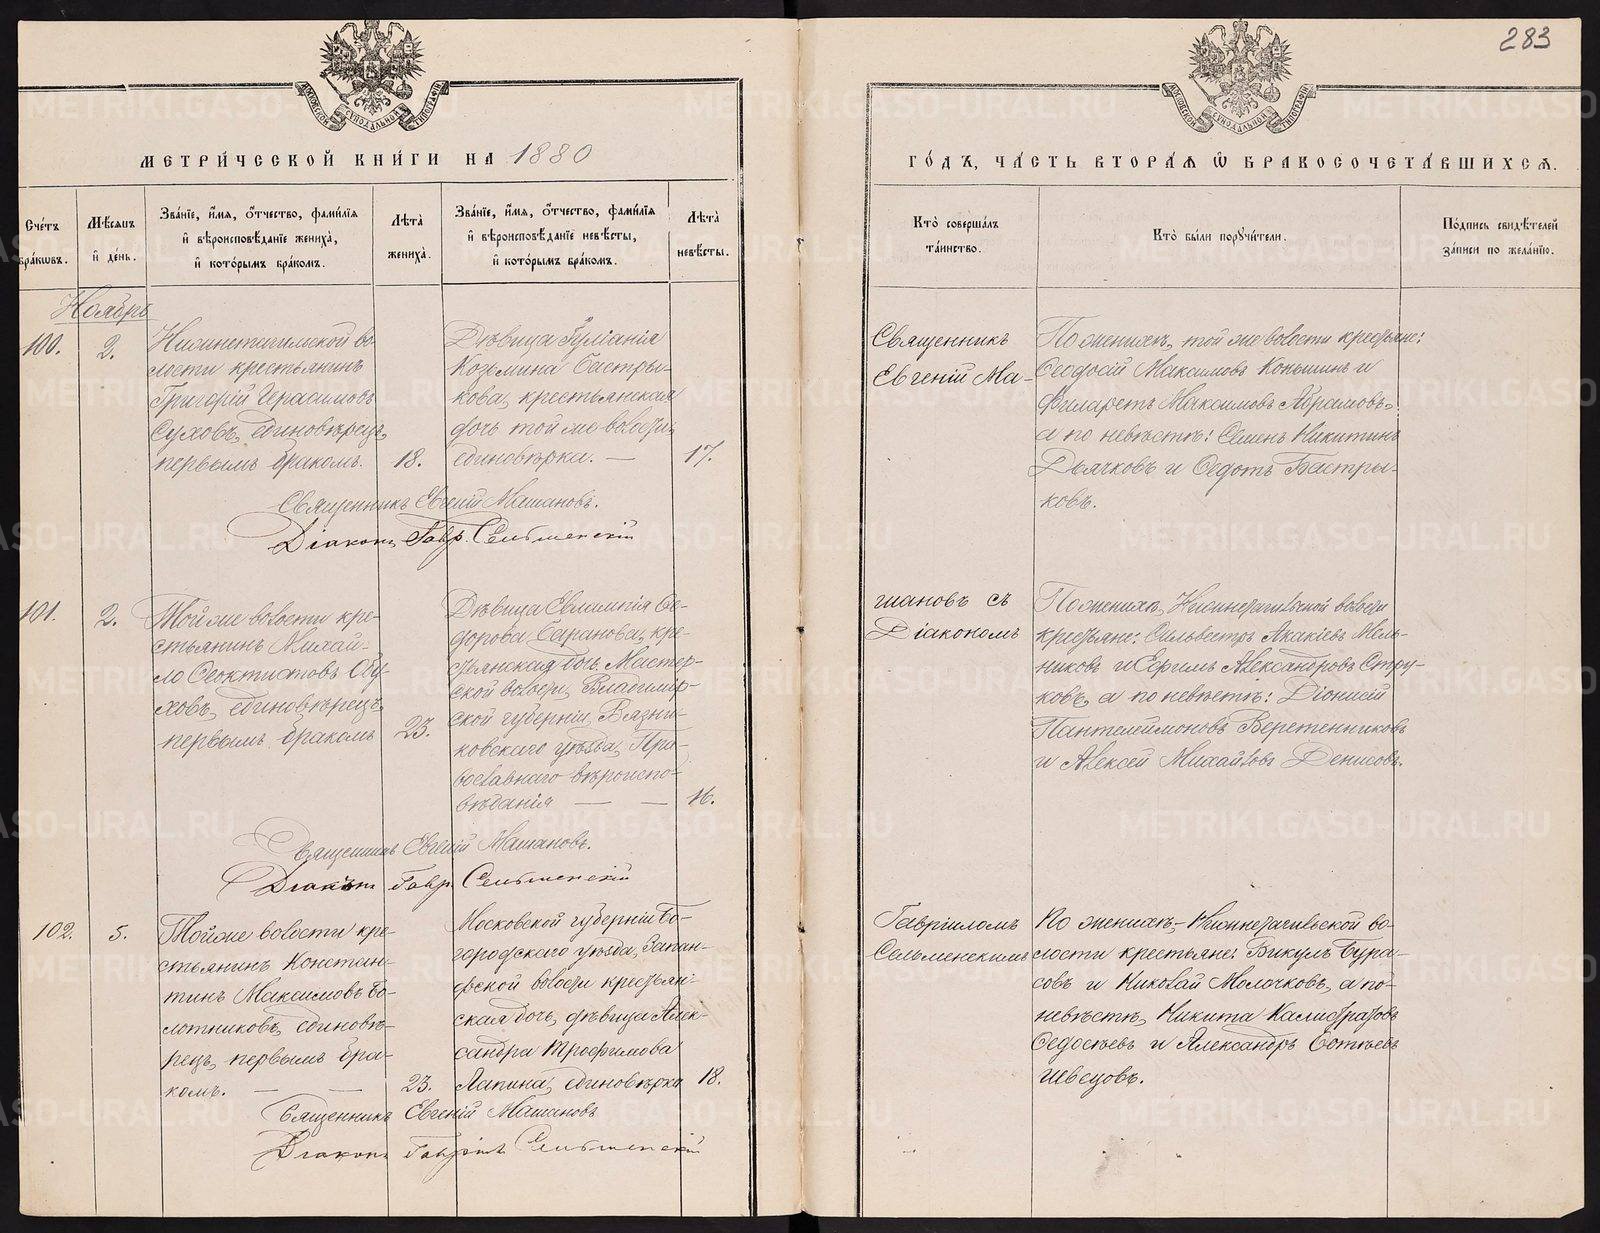 283
МЕТРИ́ЧЕСКОЙ КНИ́ГИ НА 1880
ГО́ДЪ, ЧА́СТЬ ВТОРА́Я Ѿ БРАКОСОЧЕТА́ВШИХСЯ.
Сче́тъ бра́кѡвъ.
Мѣ́сяцъ и҆ де́нь.
Зва́нїе, и҆́мя, ѻ҆́тчество, фамѝлїя
и҆ вѣроисповѣ́данїе жениха̀,
и҆ кото́рымъ бра́комъ.
Лѣ́та жениха̀.
Зва́нїе, и҆́мя, ѻ҆́тчество, фамѝлїя
и҆ вѣроисповѣ́данїе невѣ́сты,
и҆ кото́рымъ бра́комъ.
Лѣ́та невѣ́сты.
Кто̀ соверша́лъ та́инство.
Кто̀ бы́ли порꙋчи́тели.
По́дпись свидѣ́телей за́писи по жела́нїю.
Ноябрь
100.
2.
Нижнетагильской во-
лости крестьянинъ
Григорій Герасимовъ
Суховъ, единовѣрецъ,
первымъ бракомъ.
18.
Дѣвица Іуліанія
Козьмина Бастры-
кова, крестьянская
дочь той же волости,
единовѣрка. —
17.
Священникъ
Евгеній Ма-
По женихѣ, той же волости крестьяне:
Ѳеодосій Максимовъ Коньшинъ и
Филаретъ Максимовъ Абрамовъ,
а по невѣстѣ: Семенъ Никитинъ
Дьячковъ и Ѳедотъ Бастры-
ковъ.
Священникъ Евгеній Машановъ.
Діаконъ Гавр. Сельменскій
101.
2.
Той же волости кре-
стьянинъ Михай-
ло Ѳеоктистовъ Обу-
ховъ, единовѣрецъ,
первымъ бракомъ
23.
Дѣвица Евлампія Ѳе-
дорова Баранова, кре-
стьянская дочь Мстер-
ской волости, Владимір-
ской губерніи, Вязни-
ковскаго уѣзда, Пра-
вославнаго вѣроиспо-
вѣданія — —
16.
шановъ съ
Діакономъ
По женихѣ, Нижнетагильской волости
крестьяне: Сильвестръ Акакіевъ Мель-
никовъ и Ефимъ Александровъ Стру-
ковъ, а по невѣстѣ: Діонисій
Пантелеймоновъ Веретенниковъ
и Алексѣй Михайловъ Денисовъ.
Священникъ Евгеній Машановъ.
Діаконъ Гавр. Сельменскій
102.
5.
Той же волости кре-
стьянинъ Констан-
тинъ Максимовъ Бо-
лотниковъ, единовѣ-
рецъ, первымъ бра-
комъ. — —
23.
Московской губерніи Бо-
городскаго уѣзда,
волости крестьян-
ская дочь, дѣвица Алек-
сандра Трофимова
Лапина, единовѣрка
18.
Гавріиломъ
Сельменскимъ
По женихѣ,— Нижнетагильской во-
лости крестьяне: Викулъ Бура-
совъ и Николай Молочковъ, а по
невѣстѣ, Никита Калистратовъ
Ѳедосѣевъ и Александръ Ѳотѣевъ
Швецовъ.
Священникъ Евгеній Машановъ
Діаконъ Гавріилъ Сельменскій
METRIKI.GASO-URAL.RU